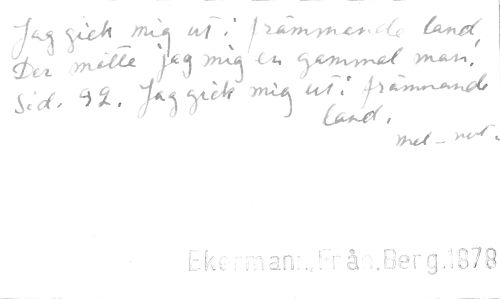 Jag gick mig ut i främmande land,
Der mötte jag mig en gammal man.
Sid. 92. Jag gick mig ut i främmande
land.
mel-not.
Ekermann, Från Berg.1878